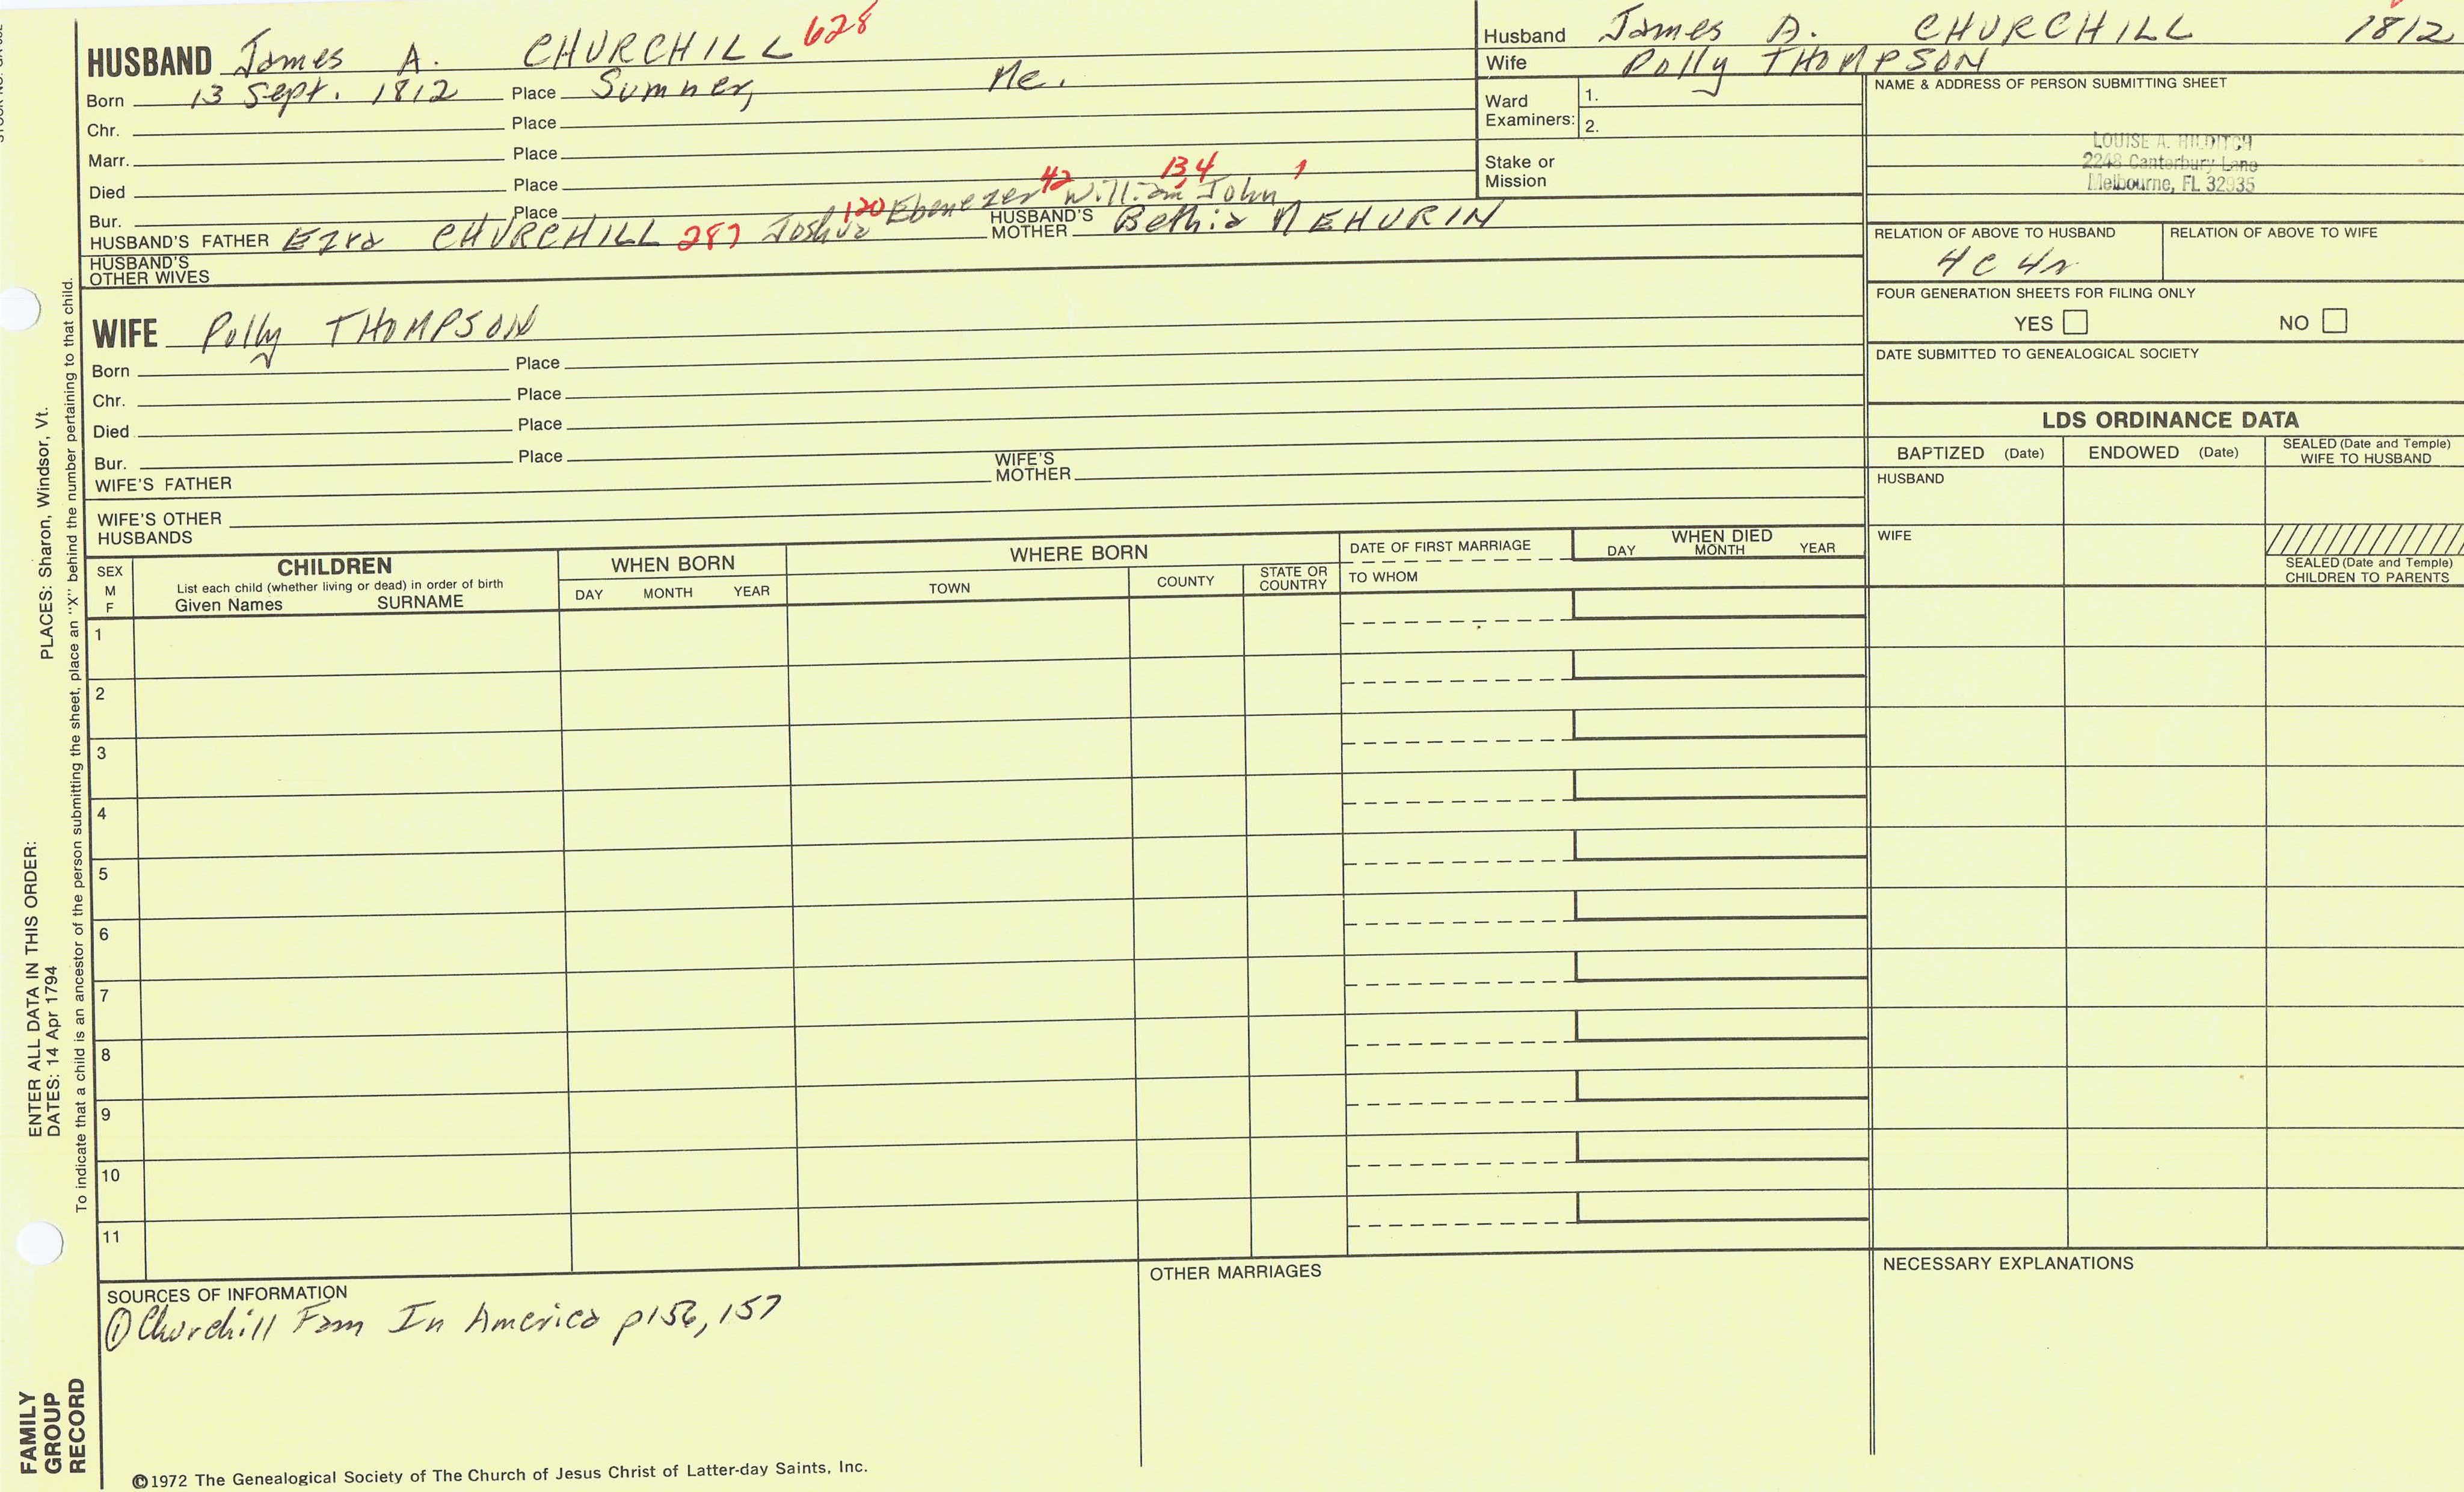 HUSBAND James A. CHURCHILL 628
Born 13 Sept. 1812 Place Sumner, Me.
Chr. Place
Marr. Place
Died Place
Bur. Place
120 42 13,4 1
HUSBAND'S FATHER Ezra CHURCHILL 287 Joshua Ebenezer William John HUSBAND'S MOTHER Bethia NEHURIN
HUSBAND'S OTHER WIVES
WIFE Polly THOMPSON
Born Place
Chr. Place
Died Place
Bur. Place
WIFE'S FATHER WIFE'S MOTHER
WIFE'S OTHER HUSBANDS
Husband James A. CHURCHILL 1812
Wife Polly THOMPSON
Ward Examiners: 1.
2.
Stake or Mission
NAME & ADDRESS OF PERSON SUBMITTING SHEET
LOUISE A. HILDITCH
2248 Canterbury Lane
Melbourne, FL 32935
RELATION OF ABOVE TO HUSBAND RELATION OF ABOVE TO WIFE
4 C 4r
FOUR GENERATION SHEETS FOR FILING ONLY
YES NO
DATE SUBMITTED TO GENEALOGICAL SOCIETY
LDS ORDINANCE DATA
BAPTIZED (Date) ENDOWED (Date) SEALED (Date and Temple) WIFE TO HUSBAND
HUSBAND
WIFE
SEALED (Date and Temple) CHILDREN TO PARENTS
SEX M F
CHILDREN
List each child (whether living or dead) in order of birth
Given Names SURNAME
WHEN BORN
DAY MONTH YEAR
WHERE BORN
TOWN COUNTY STATE OR COUNTRY
DATE OF FIRST MARRIAGE
TO WHOM
WHEN DIED
DAY MONTH YEAR
1
2
3
4
5
6
7
8
9
10
11
SOURCES OF INFORMATION
① Churchill Fam In America p156, 157
OTHER MARRIAGES
NECESSARY EXPLANATIONS
©1972 The Genealogical Society of The Church of Jesus Christ of Latter-day Saints, Inc.
FAMILY
GROUP
RECORD
ENTER ALL DATA IN THIS ORDER:
DATES: 14 Apr 1794
PLACES: Sharon, Windsor, Vt.
To indicate that a child is an ancestor of the person submitting the sheet, place an "X" behind the number pertaining to that child.